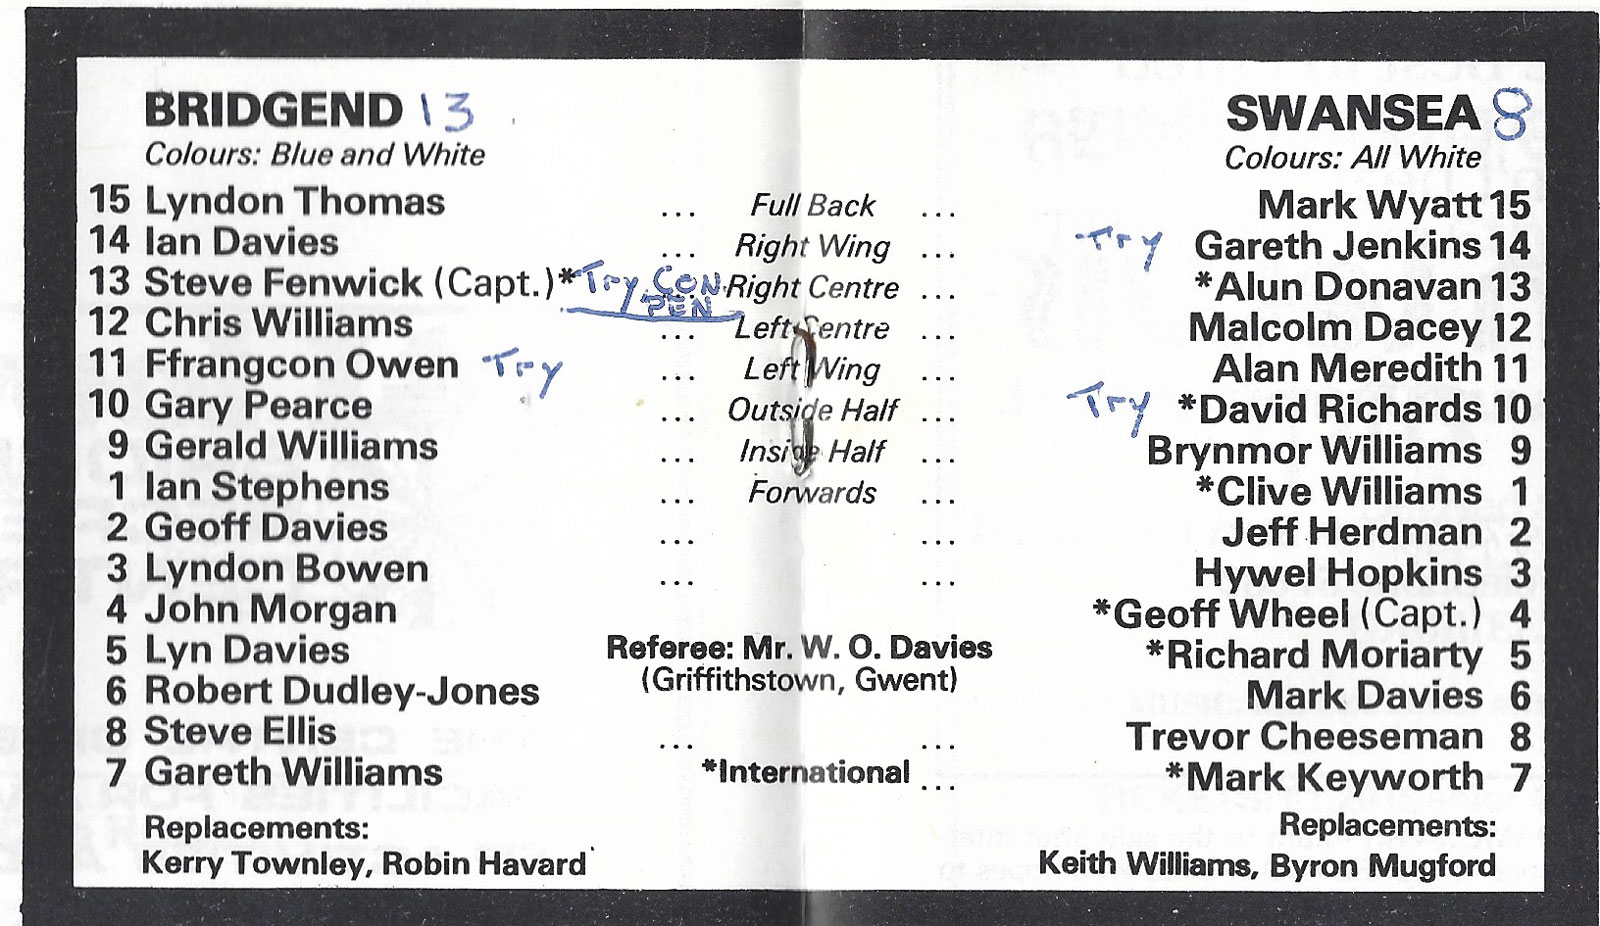 BRIDGEND 13 SWANSEA 8
Colours: Blue and White Colours: All White
15 Lyndon Thomas ... Full Back ... Mark Wyatt 15
14 Ian Davies ... Right Wing ... Try Gareth Jenkins 14
13 Steve Fenwick (Capt.)* Try CON PEN Right Centre ... *Alun Donavan 13
12 Chris Williams ... Left Centre ... Malcolm Dacey 12
11 Ffrangcon Owen Try ... Left Wing ... Alan Meredith 11
10 Gary Pearce ... Outside Half ... Try *David Richards 10
9 Gerald Williams ... Inside Half ... Brynmor Williams 9
1 Ian Stephens ... Forwards ... *Clive Williams 1
2 Geoff Davies ... ... Jeff Herdman 2
3 Lyndon Bowen ... ... Hywel Hopkins 3
4 John Morgan *Geoff Wheel (Capt.) 4
5 Lyn Davies Referee: Mr. W. O. Davies *Richard Moriarty 5
6 Robert Dudley-Jones (Griffithstown, Gwent) Mark Davies 6
8 Steve Ellis ... ... Trevor Cheeseman 8
7 Gareth Williams *International ... *Mark Keyworth 7
Replacements: Replacements:
Kerry Townley, Robin Havard Keith Williams, Byron Mugford